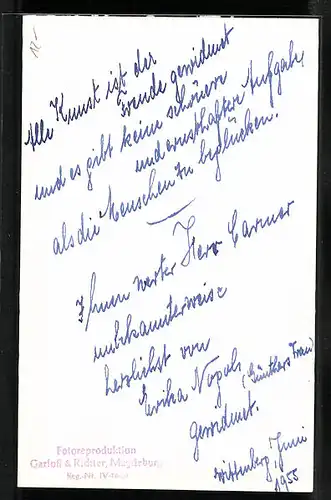 12.-
Alle Kunst ist der
Freude gewidmet
und es gibt keine schönere
und ernsthaftere Aufgabe,
als die Menschen zu beglücken.
Ihnen werter Herr Carmer
unbekannterweise
herzlichst von
Erika Nagols (Günthers Frau)
gewidmet.
Wittenberg, Juni
1955
Fotoreproduktion
Garloff & Richter, Magdeburg
Reg.-Nr. IV